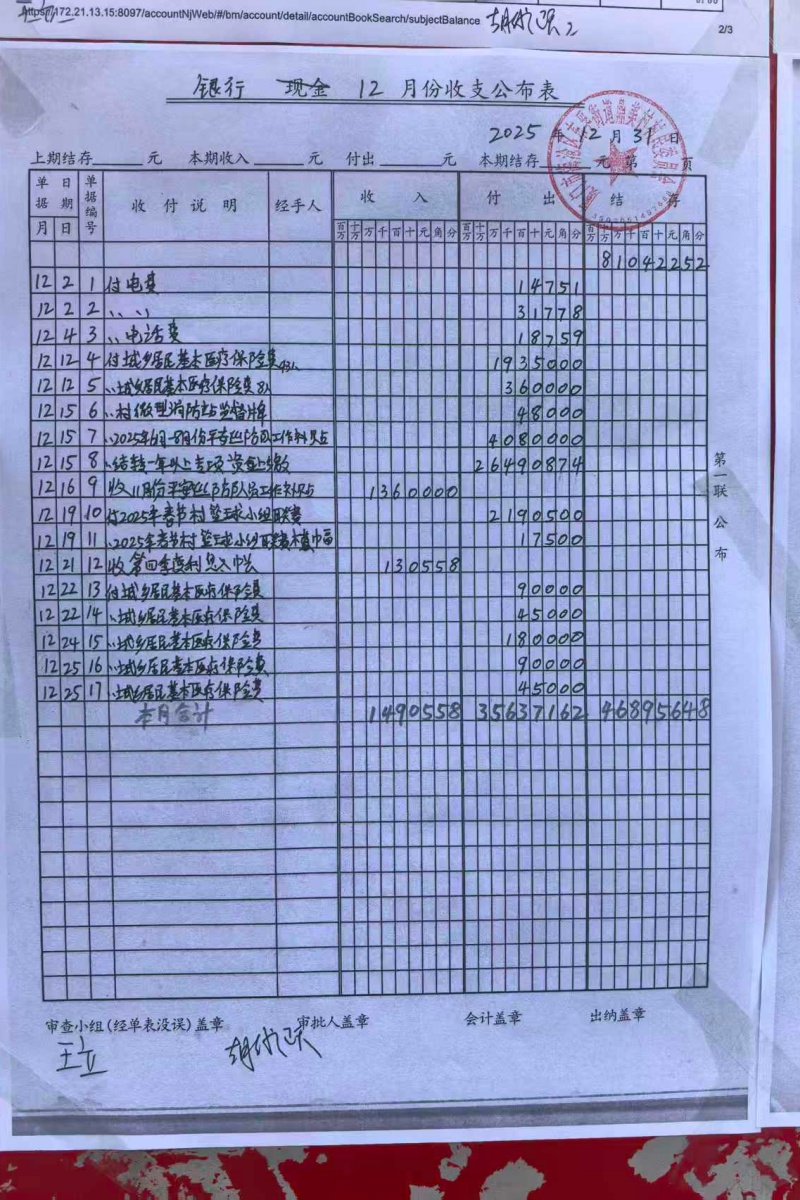 https://172.21.13.15:8097/accountNjWeb/#/bm/account/detail/accountBookSearch/subjectBalance
2/3
银行 现金 12 月份收支公布表
2025 年 12 月 31 日
上期结存 元 本期收入 元 付出 元 本期结存 元 第 页
单据 日期 单据编号 收付说明 经手人 收入 付出 结存
月 日 百万 十万 万 千 百 十 元 角 分 百万 十万 万 千 百 十 元 角 分 百万 十万 万 千 百 十 元 角 分
81042252
12 2 1 付电费 14751
12 2 2 〃 〃 31778
12 4 3 〃电话费 18759
12 12 4 付城乡居民基本医疗保险费43人 1935000
12 12 5 〃城乡居民基本医疗保险费8人 360000
12 15 6 〃村微型消防站监督牌 48000
12 15 7 〃2025年6月-8月份平安巡防员工作补贴 4080000
12 15 8 〃结转一年以上专项资金上缴 26490874
12 16 9 收11月份平安巡防队员工作补贴 1360000
12 19 10 付2025年春节村篮球小组联赛 2190500
12 19 11 〃2025年春节村篮球小组联赛横幅 17500
12 21 12 收第四季度利息入账 130558
12 22 13 付城乡居民基本医疗保险费 90000
12 22 14 〃城乡居民基本医疗保险费 45000
12 24 15 〃城乡居民基本医疗保险费 180000
12 25 16 〃城乡居民基本医疗保险费 90000
12 25 17 〃城乡居民基本医疗保险费 45000
本月合计 1490558 35637162 46895648
第一联 公布
审查小组(经单表没误)盖章 审批人盖章 会计盖章 出纳盖章
王立